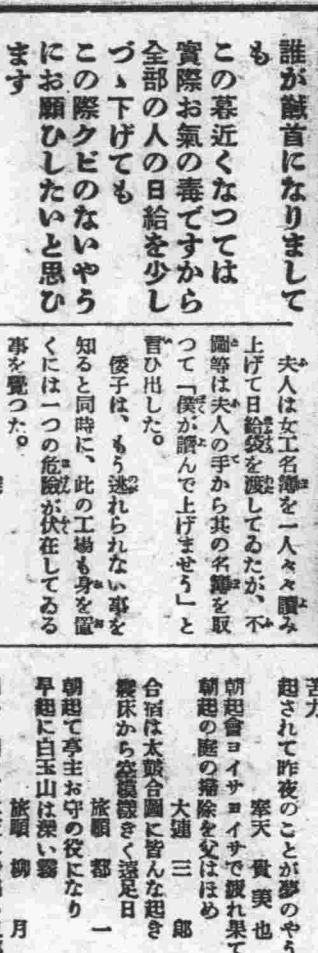 誰が馘首になりまして
も
この暮近くなつては
實際お氣の毒ですから
全部の人の日給を少し
づゝ下げても
この際クビのないやう
にお願ひしたいと思ひ
ます
夫人は女工名簿を一人々々讀み
上げて日給袋を渡してゐたが、不
圖等は夫人の手から其の名簿を取
つて「僕が讀んで上げませう」と
言ひ出した。
倭子は、もう逃れられない事を
知ると同時に、此の工場も身を置
くには一つの危險が伏在してゐる
事を覺つた。
苦力
起されて昨夜のことが夢のやう
奉天 貴美也
朝起會ヨイサヨイサで疲れ果て
朝起の庭の掃除を父はほめ
大連 三郎
合宿は太鼓合圖に皆んな起き
寢床から空模樣きく遠足日
旅順 都一
朝起て亭主お守の役になり
早起に白玉山は深い霧
旅順 柳月